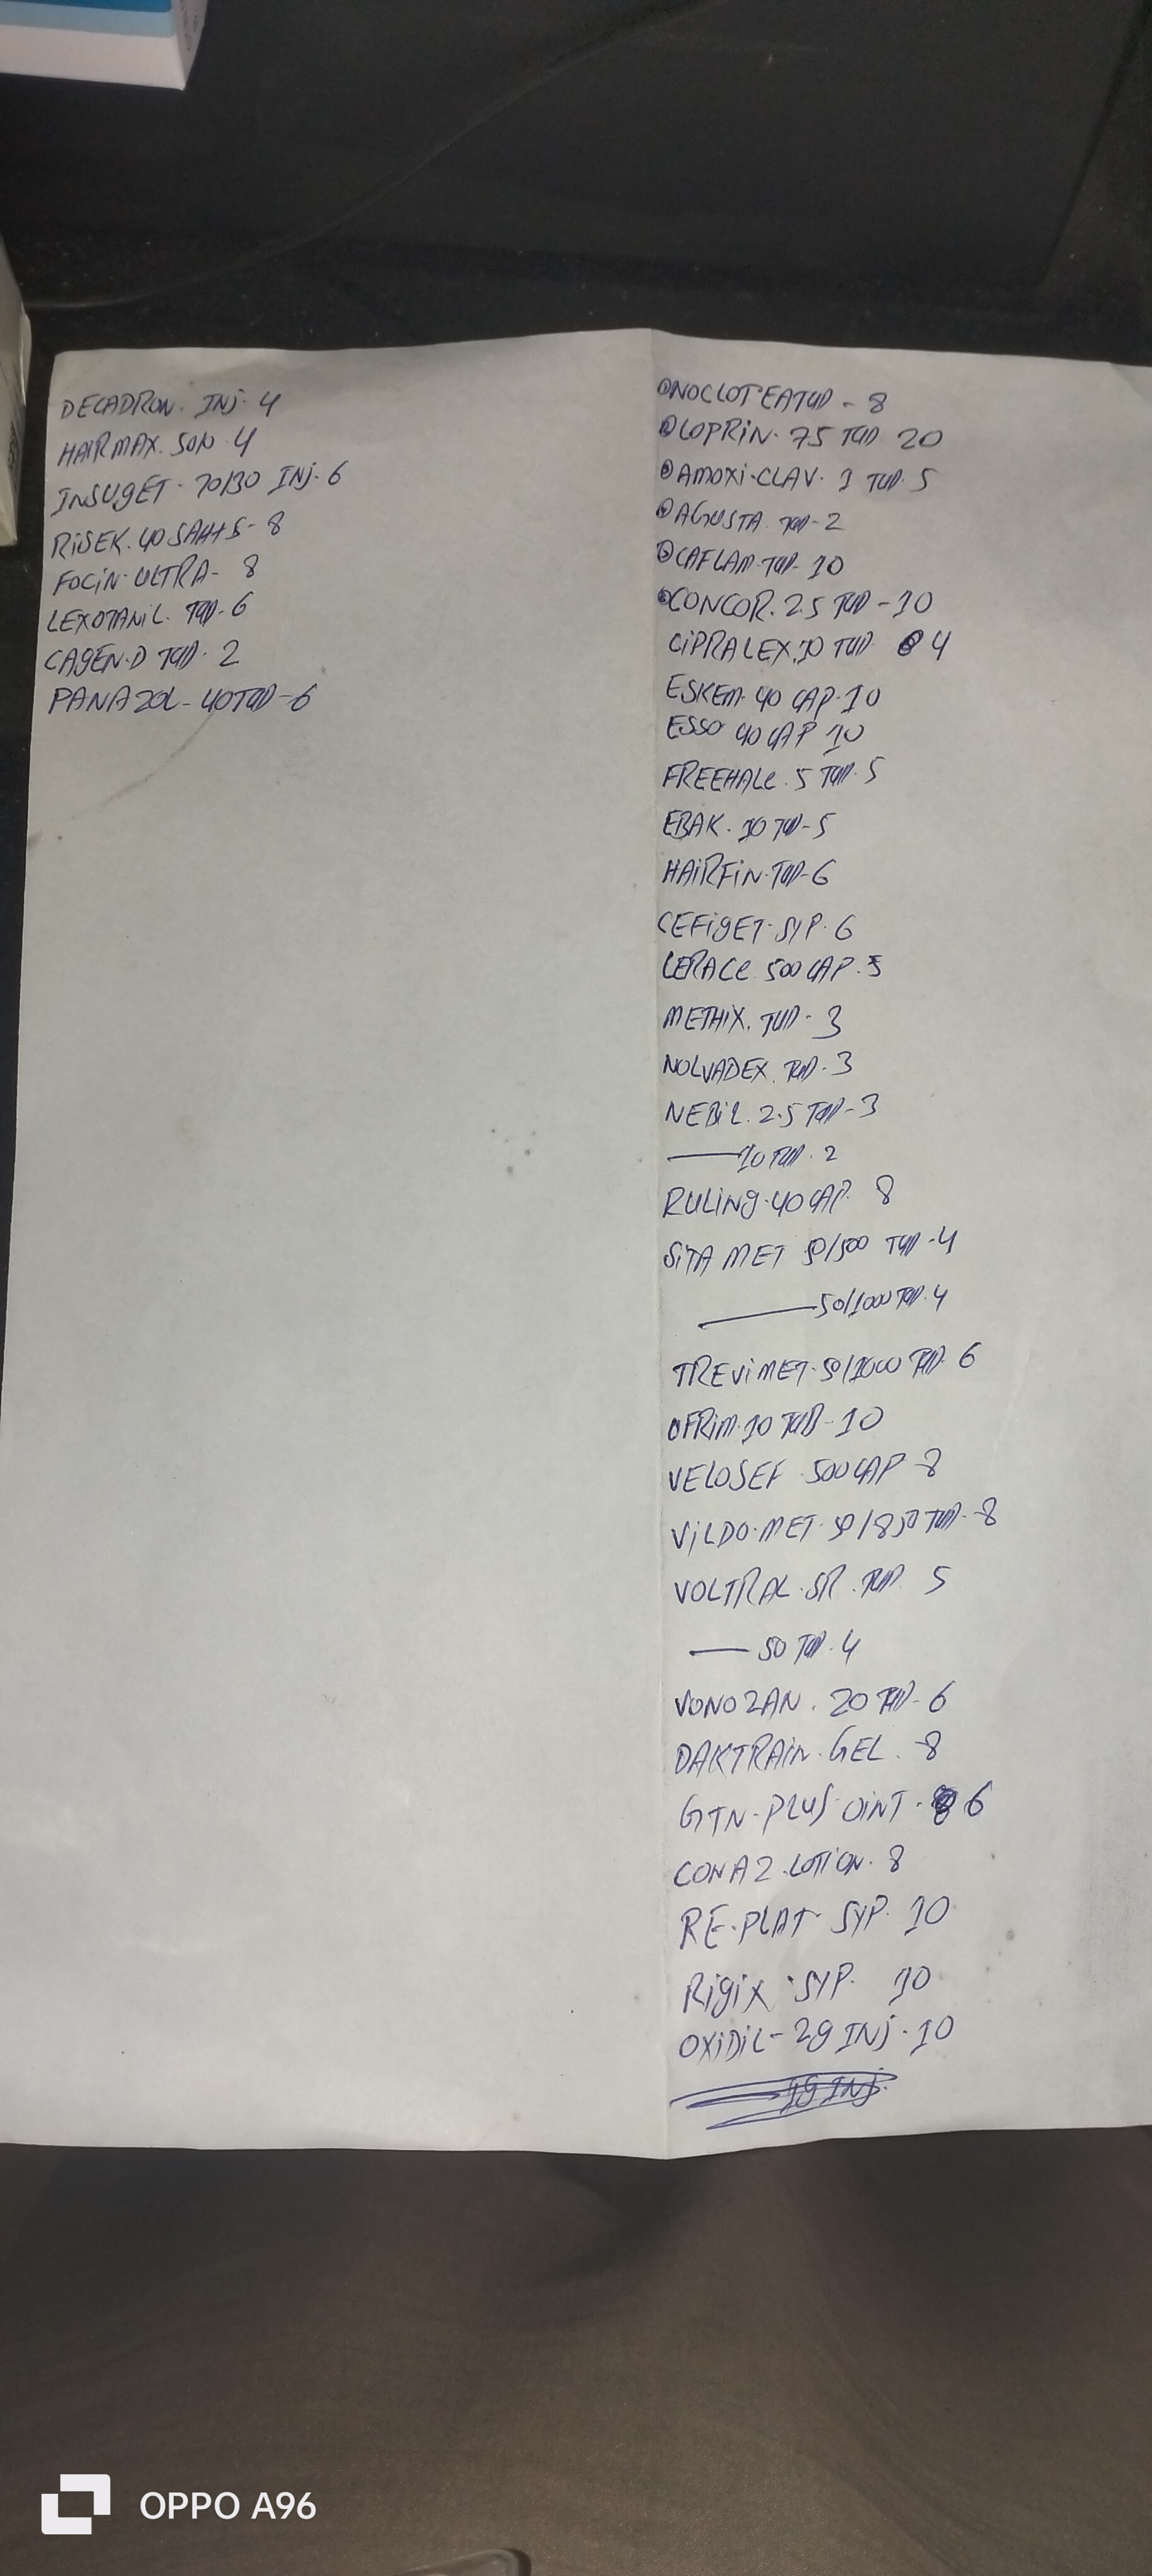 DECADRON. INJ. 4
HAIRMAX. SON 4
INSUGET - 70/30 INJ. 6
RISEK. 40 SAHTS - 8
FOCIN. ULTRA - 8
LEXOTANIL. TAB. 6
CAGEN.D TAB. 2
PANAZOL - 40 TAB - 6
① NOCLOT EA TAB - 8
② LOPRIN. 75 TAB 20
③ AMOXI-CLAV. 1 TAB. 5
④ AGUSTA. TAB - 2
⑤ CAFLAM. TAB - 10
⑥ CONCOR. 2.5 TAB - 10
CIPRALEX. 10 TAB 4
ESKEM. 40 CAP. 10
ESSO 40 CAP 10
FREEHALE. 5 TAB. 5
EBAK. 10 TAB - 5
HAIRFIN. TAB - 6
CEFIGET. SYP. 6
LERACE 500 CAP. 5
METHIX. TAB - 3
NOLVADEX. TAB. 3
NEBIL. 2.5 TAB - 3
—— 10 TAB. 2
RULING. 40 CAP. 8
SITA MET 50/500 TAB - 4
—— 50/1000 TAB. 4
TREVIMET. 50/1000 TAB. 6
OFRIM. 10 TAB - 10
VELOSEF. 500 CAP - 8
VILDO.MET. 50/850 TAB - 8
VOLTRAL. SR. TAB. 5
—— 50 TAB. 4
VONOZAN. 20 TAB - 6
DAKTRAIN. GEL. - 8
GTN-PLUS OINT. 6
CONAZ. LOTION. 8
RE.PLAT SYP. 10
RIGIX SYP. 10
OXIDIL - 2g INJ. 10
—— 1g INJ.
OPPO A96